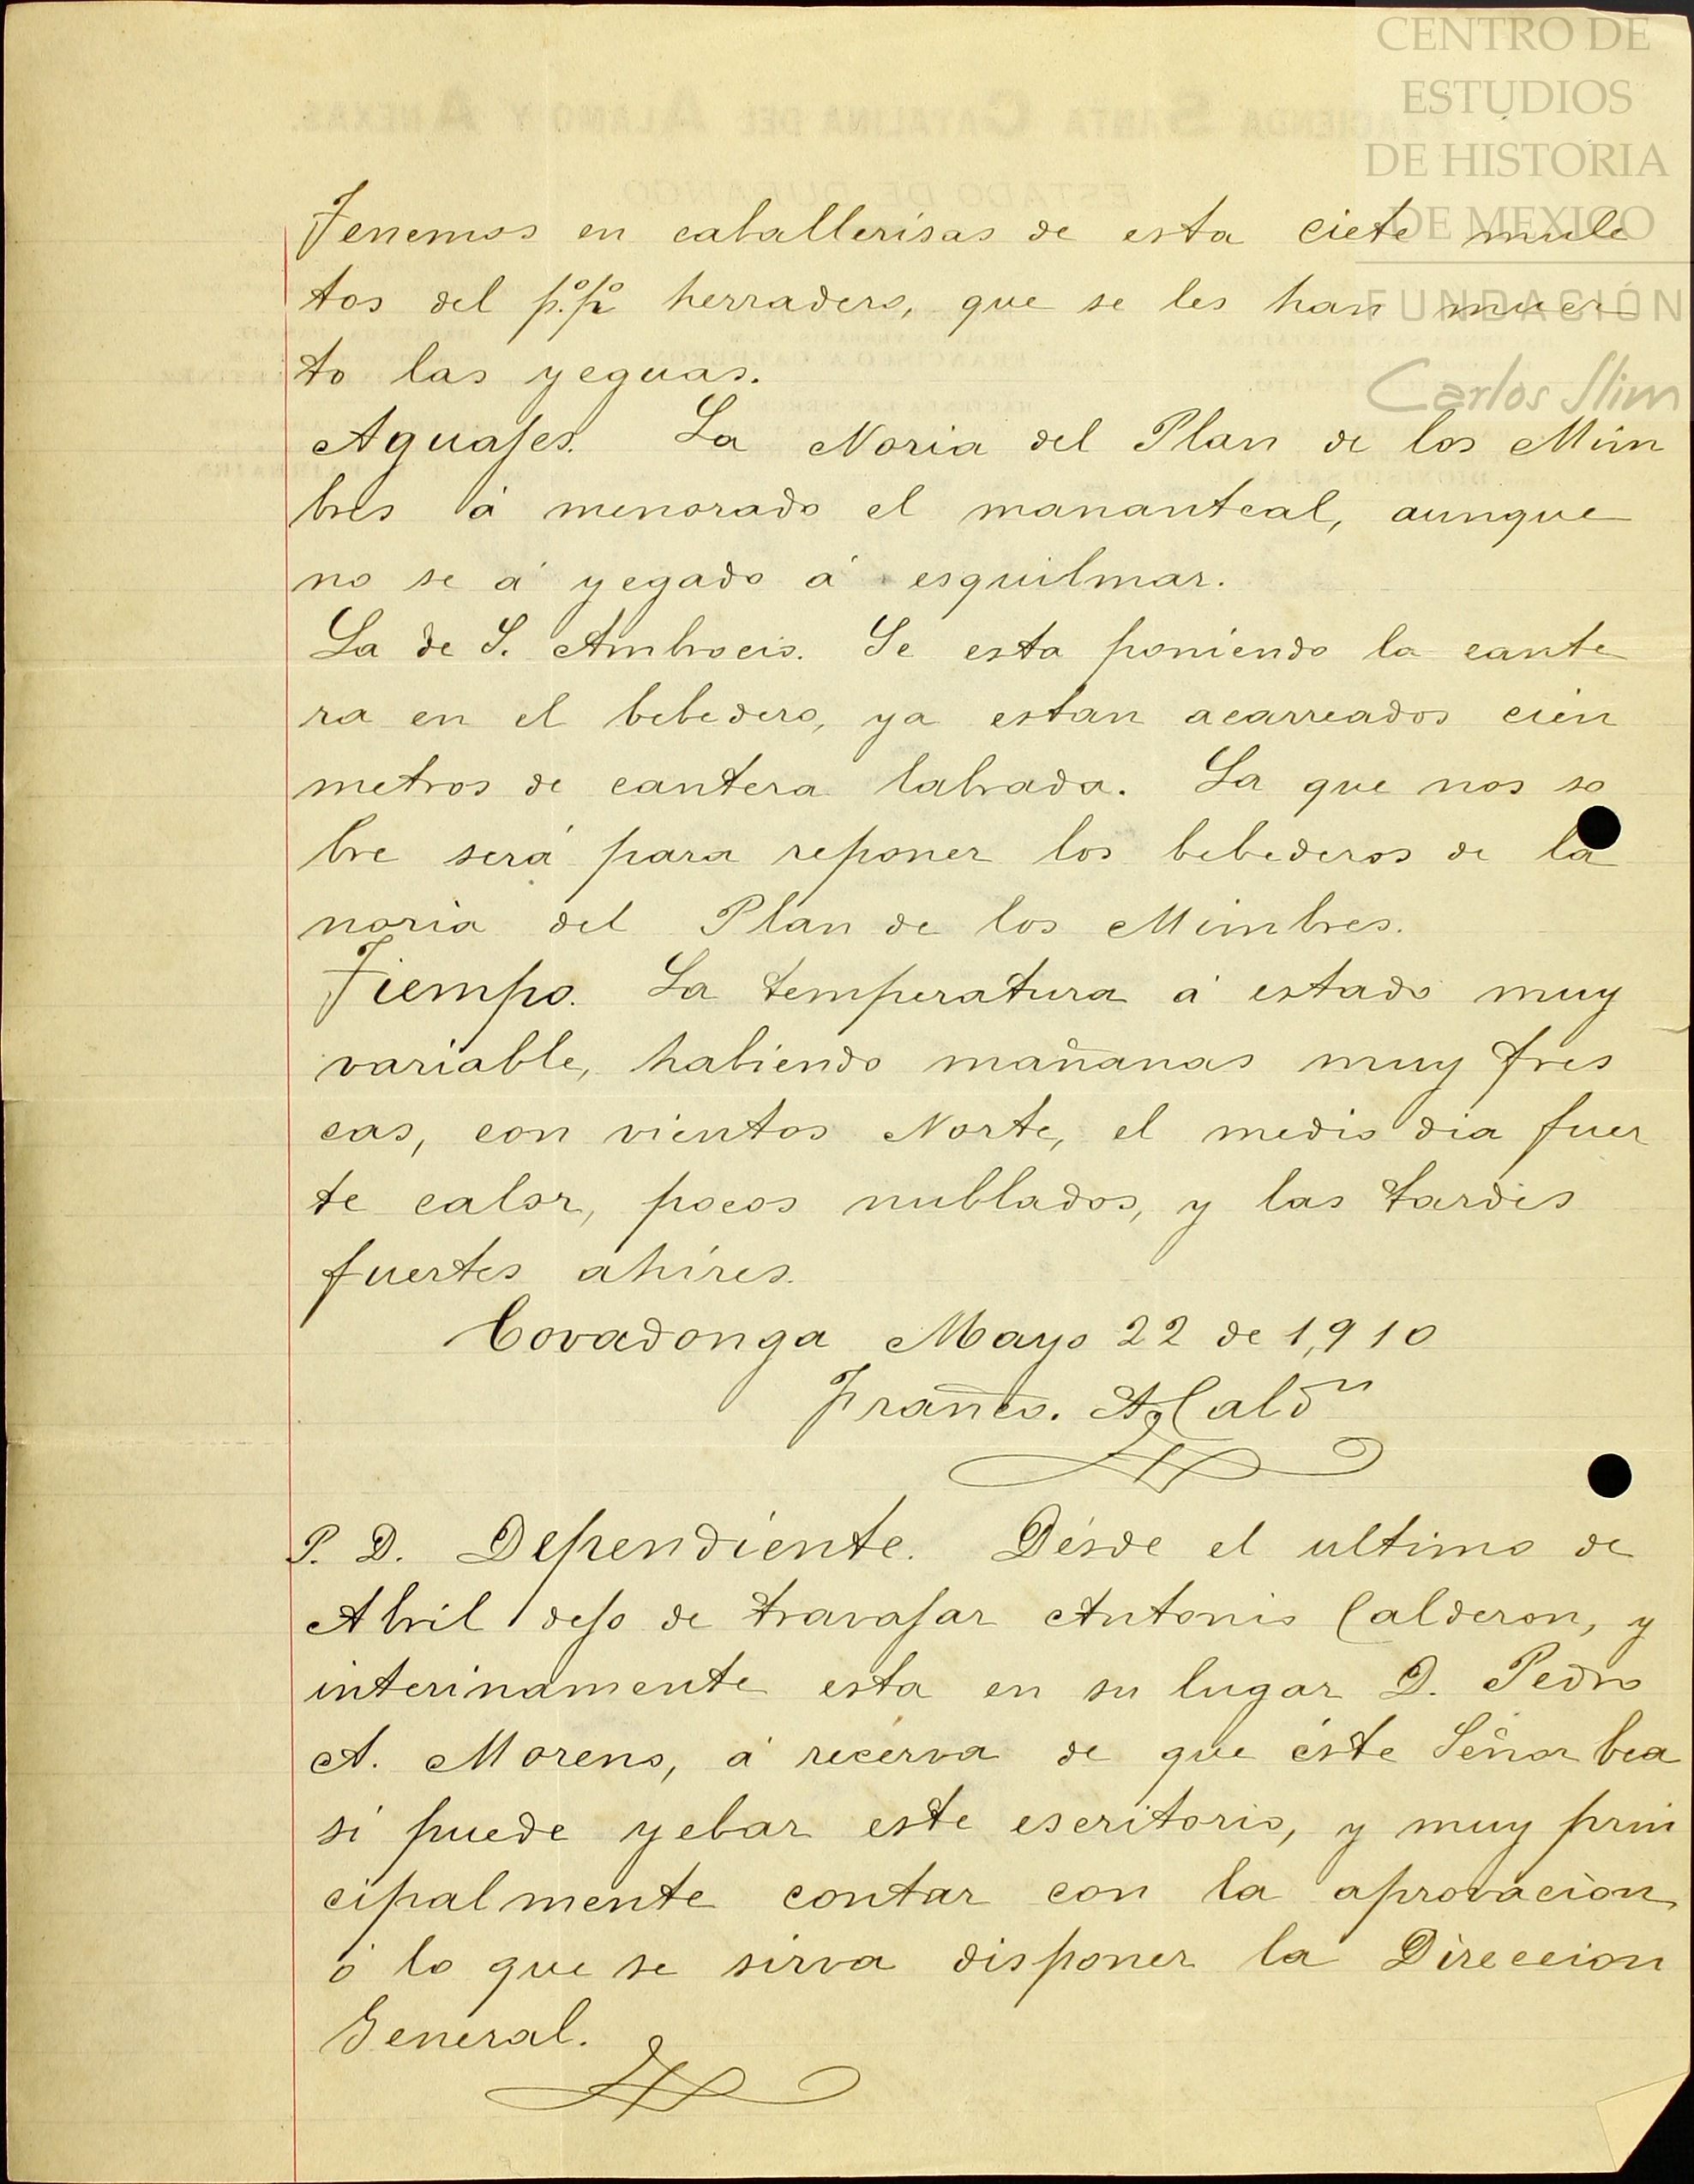 CENTRO DE
ESTUDIOS
DE HISTORIA
DE MEXICO
FUNDACIÓN
Carlos Slim
Tenemos en caballerisas de esta ciete mule
tos del p.º pº herradero, que se les han muer
to las yeguas.
Aguajes. La Noria del Plan de los Mim
bres á menorado el mananteal, aunque
no se á yegado á esquilmar.
La de S. Ambrocio. Se esta poniendo la cante
ra en el bebedero, ya estan acarreados cien
metros de cantera labrada. La que nos so
bre será para reponer los bebederos de la
noria del Plan de los Mimbres.
Tiempo. La temperatura á estado muy
variable, habiendo mañanas muy fres
cas, con vientos Norte, el medio dia fuer
te calor, pocos nublados, y las tardes
fuertes ahires.
Covadonga Mayo 22 de 1,910
Franco. A. Caldn
P. D. Dependiente. Désde el ultimo de
Abril dejo de travajar Antonio Calderon, y
interinamente esta en su lugar D. Pedro
A. Moreno, á recérva de que éste Señor bea
si puede yebar este escritorio, y muy prin
cipalmente contar con la aprovación,
ó lo que se sirva disponer la Direccion
General.